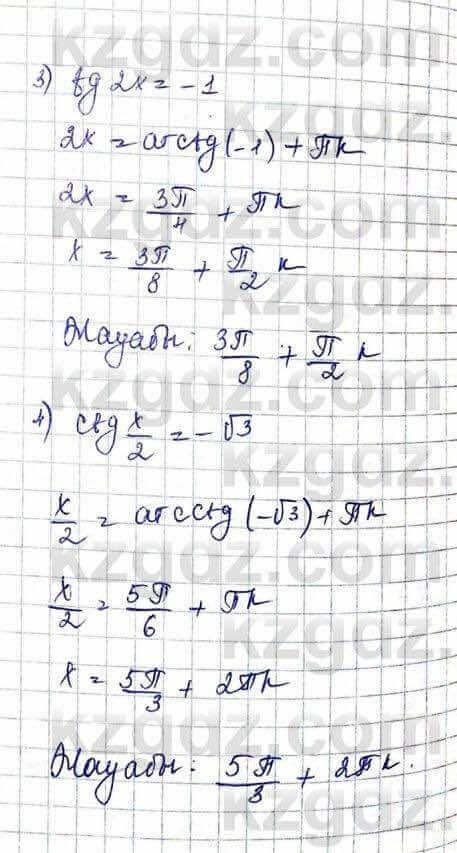 3) tg 2x = -1
2x = arctg(-1) + πk
2x = 3π/4 + πk
x = 3π/8 + π/2 k
Жауабы: 3π/8 + π/2 k
4) ctg x/2 = -√3
x/2 = arcctg(-√3) + πk
x/2 = 5π/6 + πk
x = 5π/3 + 2πk
Жауабы: 5π/3 + 2πk.
kzgdz.com